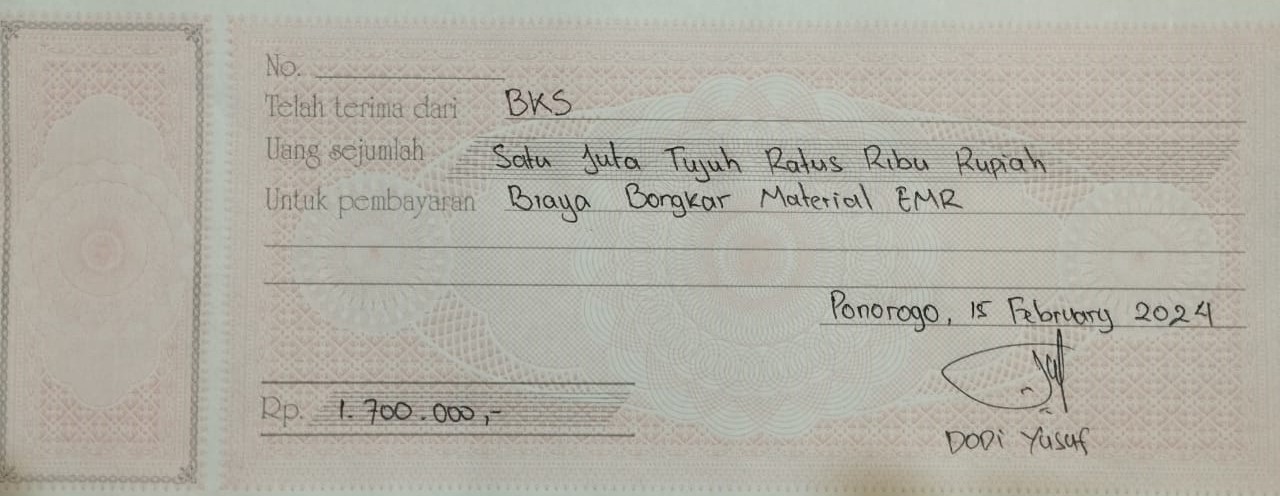 No.
Telah terima dari BKS
Uang sejumlah Satu Juta Tujuh Ratus Ribu Rupiah
Untuk pembayaran Biaya Bongkar Material EMR
Ponorogo, 15 February 2024
Rp. 1.700.000,-
DODi Yusuf